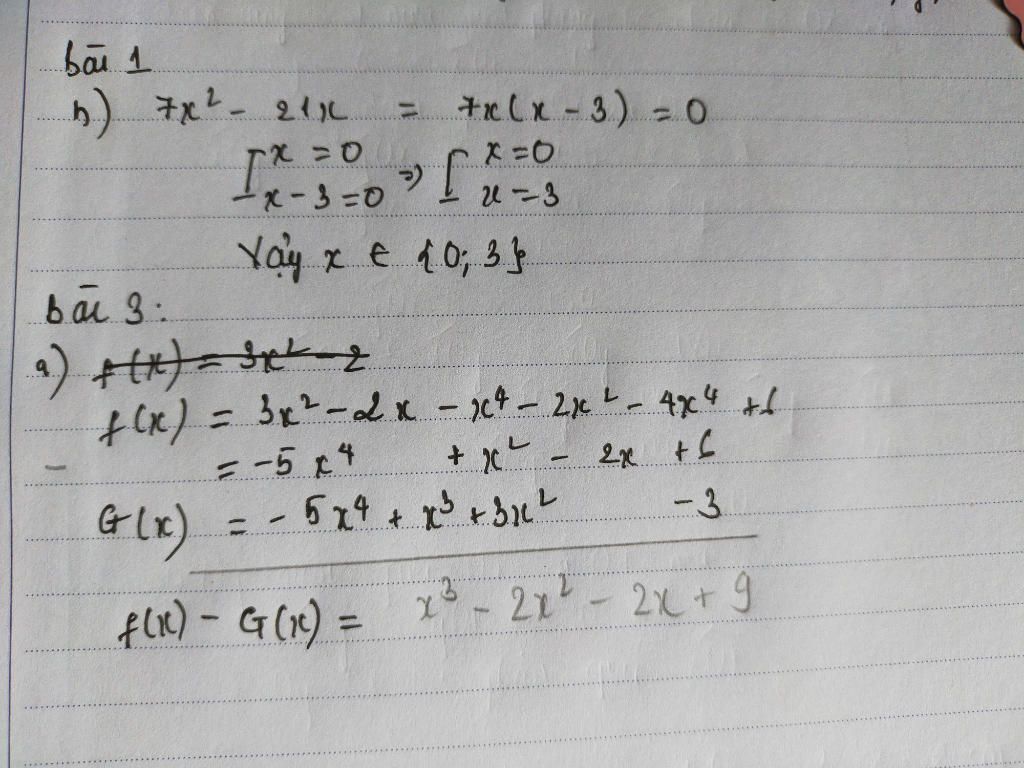 bāi 1
h) 7x² - 21x = 7x(x - 3) = 0
[x = 0
x - 3 = 0 => [x = 0
x = 3
Vậy x ∈ {0; 3}
bāi 3:
a) f(x) = 3x² - 2
f(x) = 3x² - 2x - x⁴ - 2x² - 4x⁴ + 6
- = -5x⁴ + x² - 2x + 6
G(x) = -5x⁴ + x³ + 3x² - 3
f(x) - G(x) = x³ - 2x² - 2x + 9